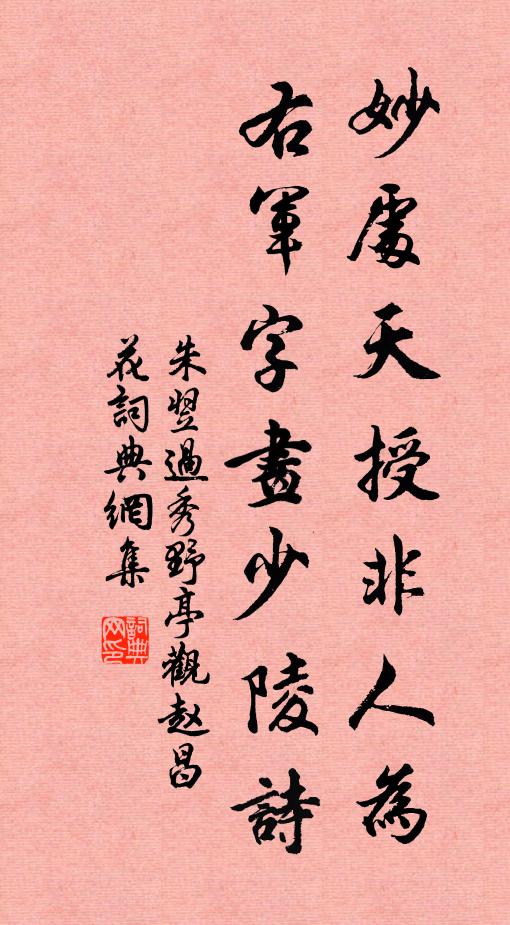 妙處天授非人為
右軍字畫少陵詩
朱翌過秀野亭觀赵昌
花詞典網集
詞典网印